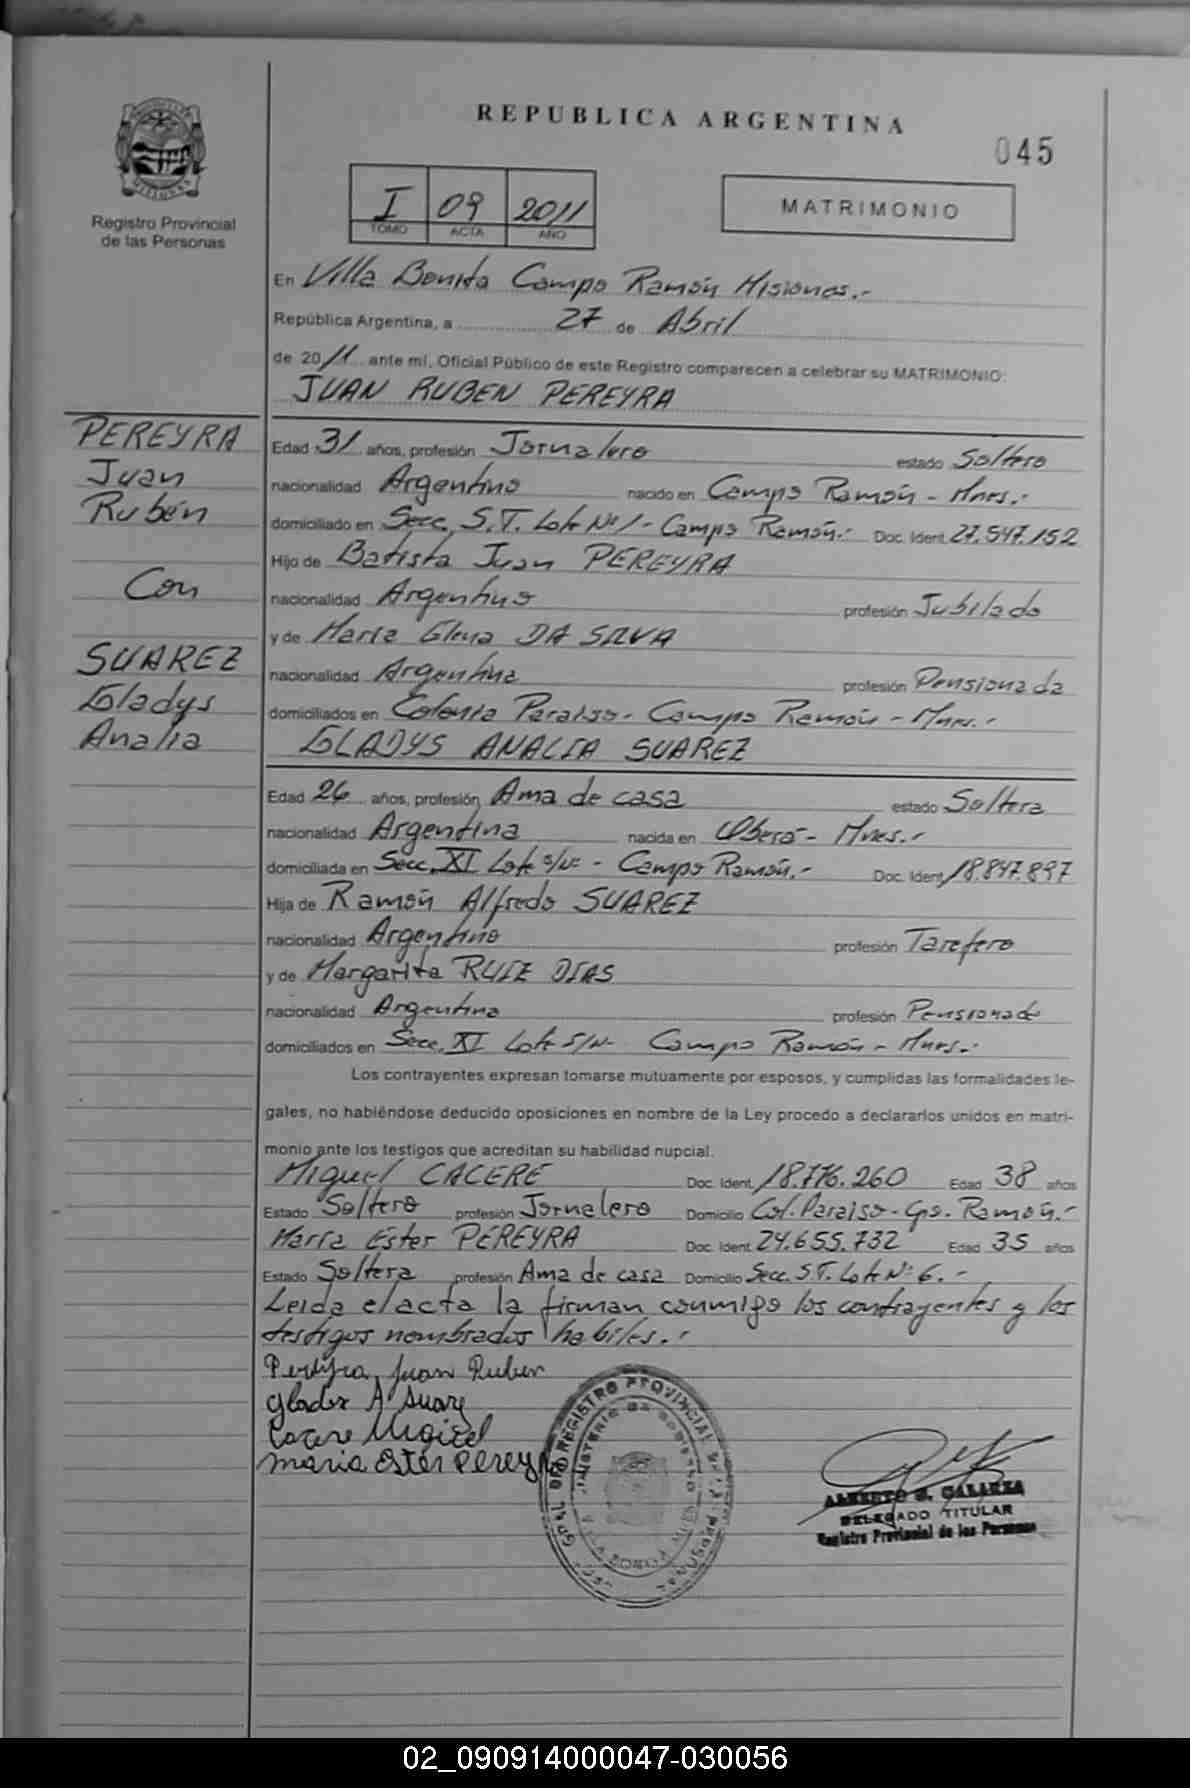 REPUBLICA ARGENTINA
045
Registro Provincial
de las Personas
I 09 2011
TOMO ACTA AÑO
MATRIMONIO
En Villa Bonita Campo Ramón Misiones.-
República Argentina, a 27 de Abril
de 2011 ante mí, Oficial Público de este Registro comparecen a celebrar su MATRIMONIO:
JUAN RUBEN PEREYRA
PEREYRA
Juan
Rubén
Con
SUAREZ
Gladys
Analia
Edad 31 años, profesión Jornalero estado Soltero
nacionalidad Argentino nacido en Campo Ramón - Mnes.-
domiciliado en Secc. S.T. Lote Nº 1 - Campo Ramón.- Doc. Ident. 27.547.152
Hijo de Batista Juan PEREYRA
nacionalidad Argentino profesión Jubilado
y de María Elena DA SILVA
nacionalidad Argentina profesión Pensionada
domiciliados en Colonia Paraiso - Campo Ramón - Mnes.-
GLADYS ANALIA SUAREZ
Edad 26 años, profesión Ama de casa estado Soltera
nacionalidad Argentina nacida en Oberá - Mnes.-
domiciliada en Secc. XI Lote s/Nº - Campo Ramón.- Doc. Ident. 18.847.897
Hija de Ramón Alfredo SUAREZ
nacionalidad Argentino profesión Tarefero
y de Margarita RUIZ DIAS
nacionalidad Argentina profesión Pensionada
domiciliados en Secc. XI Lote S/N- Campo Ramón - Mnes.-
Los contrayentes expresan tomarse mutuamente por esposos, y cumplidas las formalidades le-
gales, no habiéndose deducido oposiciones en nombre de la Ley procedo a declararlos unidos en matri-
monio ante los testigos que acreditan su habilidad nupcial.
Miguel CACERE Doc. Ident. 18.776.260 Edad 38 años
Estado Soltero profesión Jornalero Domicilio Col. Paraiso - Cpo. Ramón.-
María Ester PEREYRA Doc. Ident. 24.655.732 Edad 35 años
Estado Soltera profesión Ama de casa Domicilio Secc. S.T. Lote Nº 6.-
Leida el acta la firman conmigo los contrayentes y los
testigos nombrados habiles.-
Juan Ruben
A Suarez
Cacere Miguel
maria Ester Pereyra
REGISTRO PROVINCIAL DE LAS PERSONAS
MINISTERIO DE GOBIERNO
VILLA BONITA
ALBERTO G. GALARZA
DELEGADO TITULAR
Registro Provincial de las Personas
02_090914000047-030056